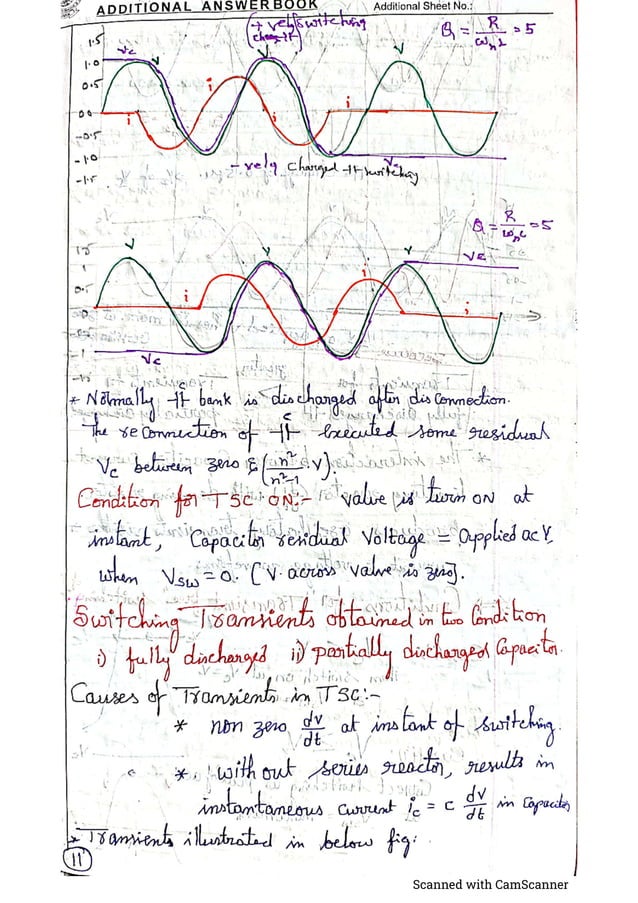 ADDITIONAL ANSWER BOOK Additional Sheet No.:
+ vely switching
charged
Q = R/ωnL = 5
1.5
1.0
0.5
0.0
-0.5
-1.0
-1.5
Vc V i i V i V
- vely charged ⊣⊢ switching
Vc
Q = R/ωnL = 5
1.5
1
0.5
-1
V i V i V Vc i
Vc
* Normally ⊣⊢ bank is discharged after disconnection.
The reconnection of ⊣⊢ executed some residual
Vc between zero & (n²/n²-1 V).
Condition for TSC ON:- valve is turn ON at
instant, Capacitor residual Voltage = applied ac V
when Vsw = 0. [V across valve is zero].
Switching Transients obtained in two Condition
i) fully discharged ii) partially discharged Capacitor.
Causes of Transients in TSC:-
* non zero dv/dt at instant of switching.
* with out series reactor, results in
instantaneous current ic = c dv/dt in Capacitor
* Transients illustrated in below fig:
11
Scanned with CamScanner